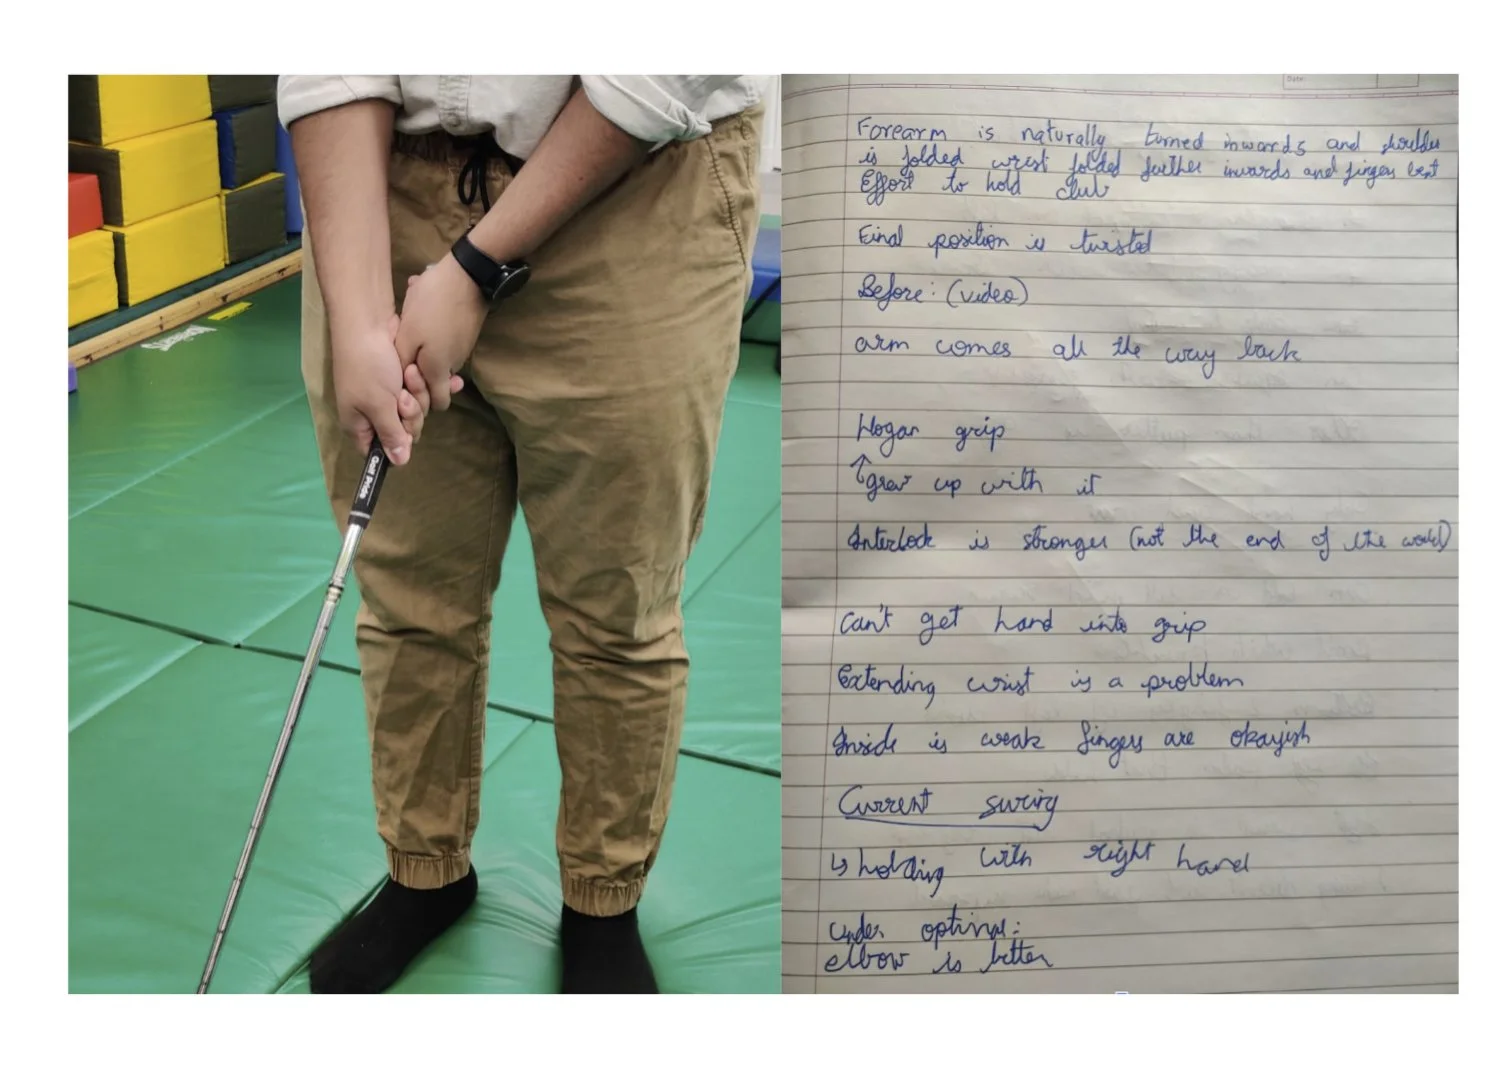 Golf Pride
Date:
Forearm is naturally turned inwards and shoulder
is folded wrist folded further inwards and fingers bent
Effort to hold club
Final position is twisted
Before: (video)
arm comes all the way back
Hogan grip
↑grew up with it
Interlock is stronger (not the end of the world)
Can't get hand into grip
Extending wrist is a problem
Inside is weak fingers are okayish
Current swing
↳ holding with right hand
Under optimal:
elbow is better